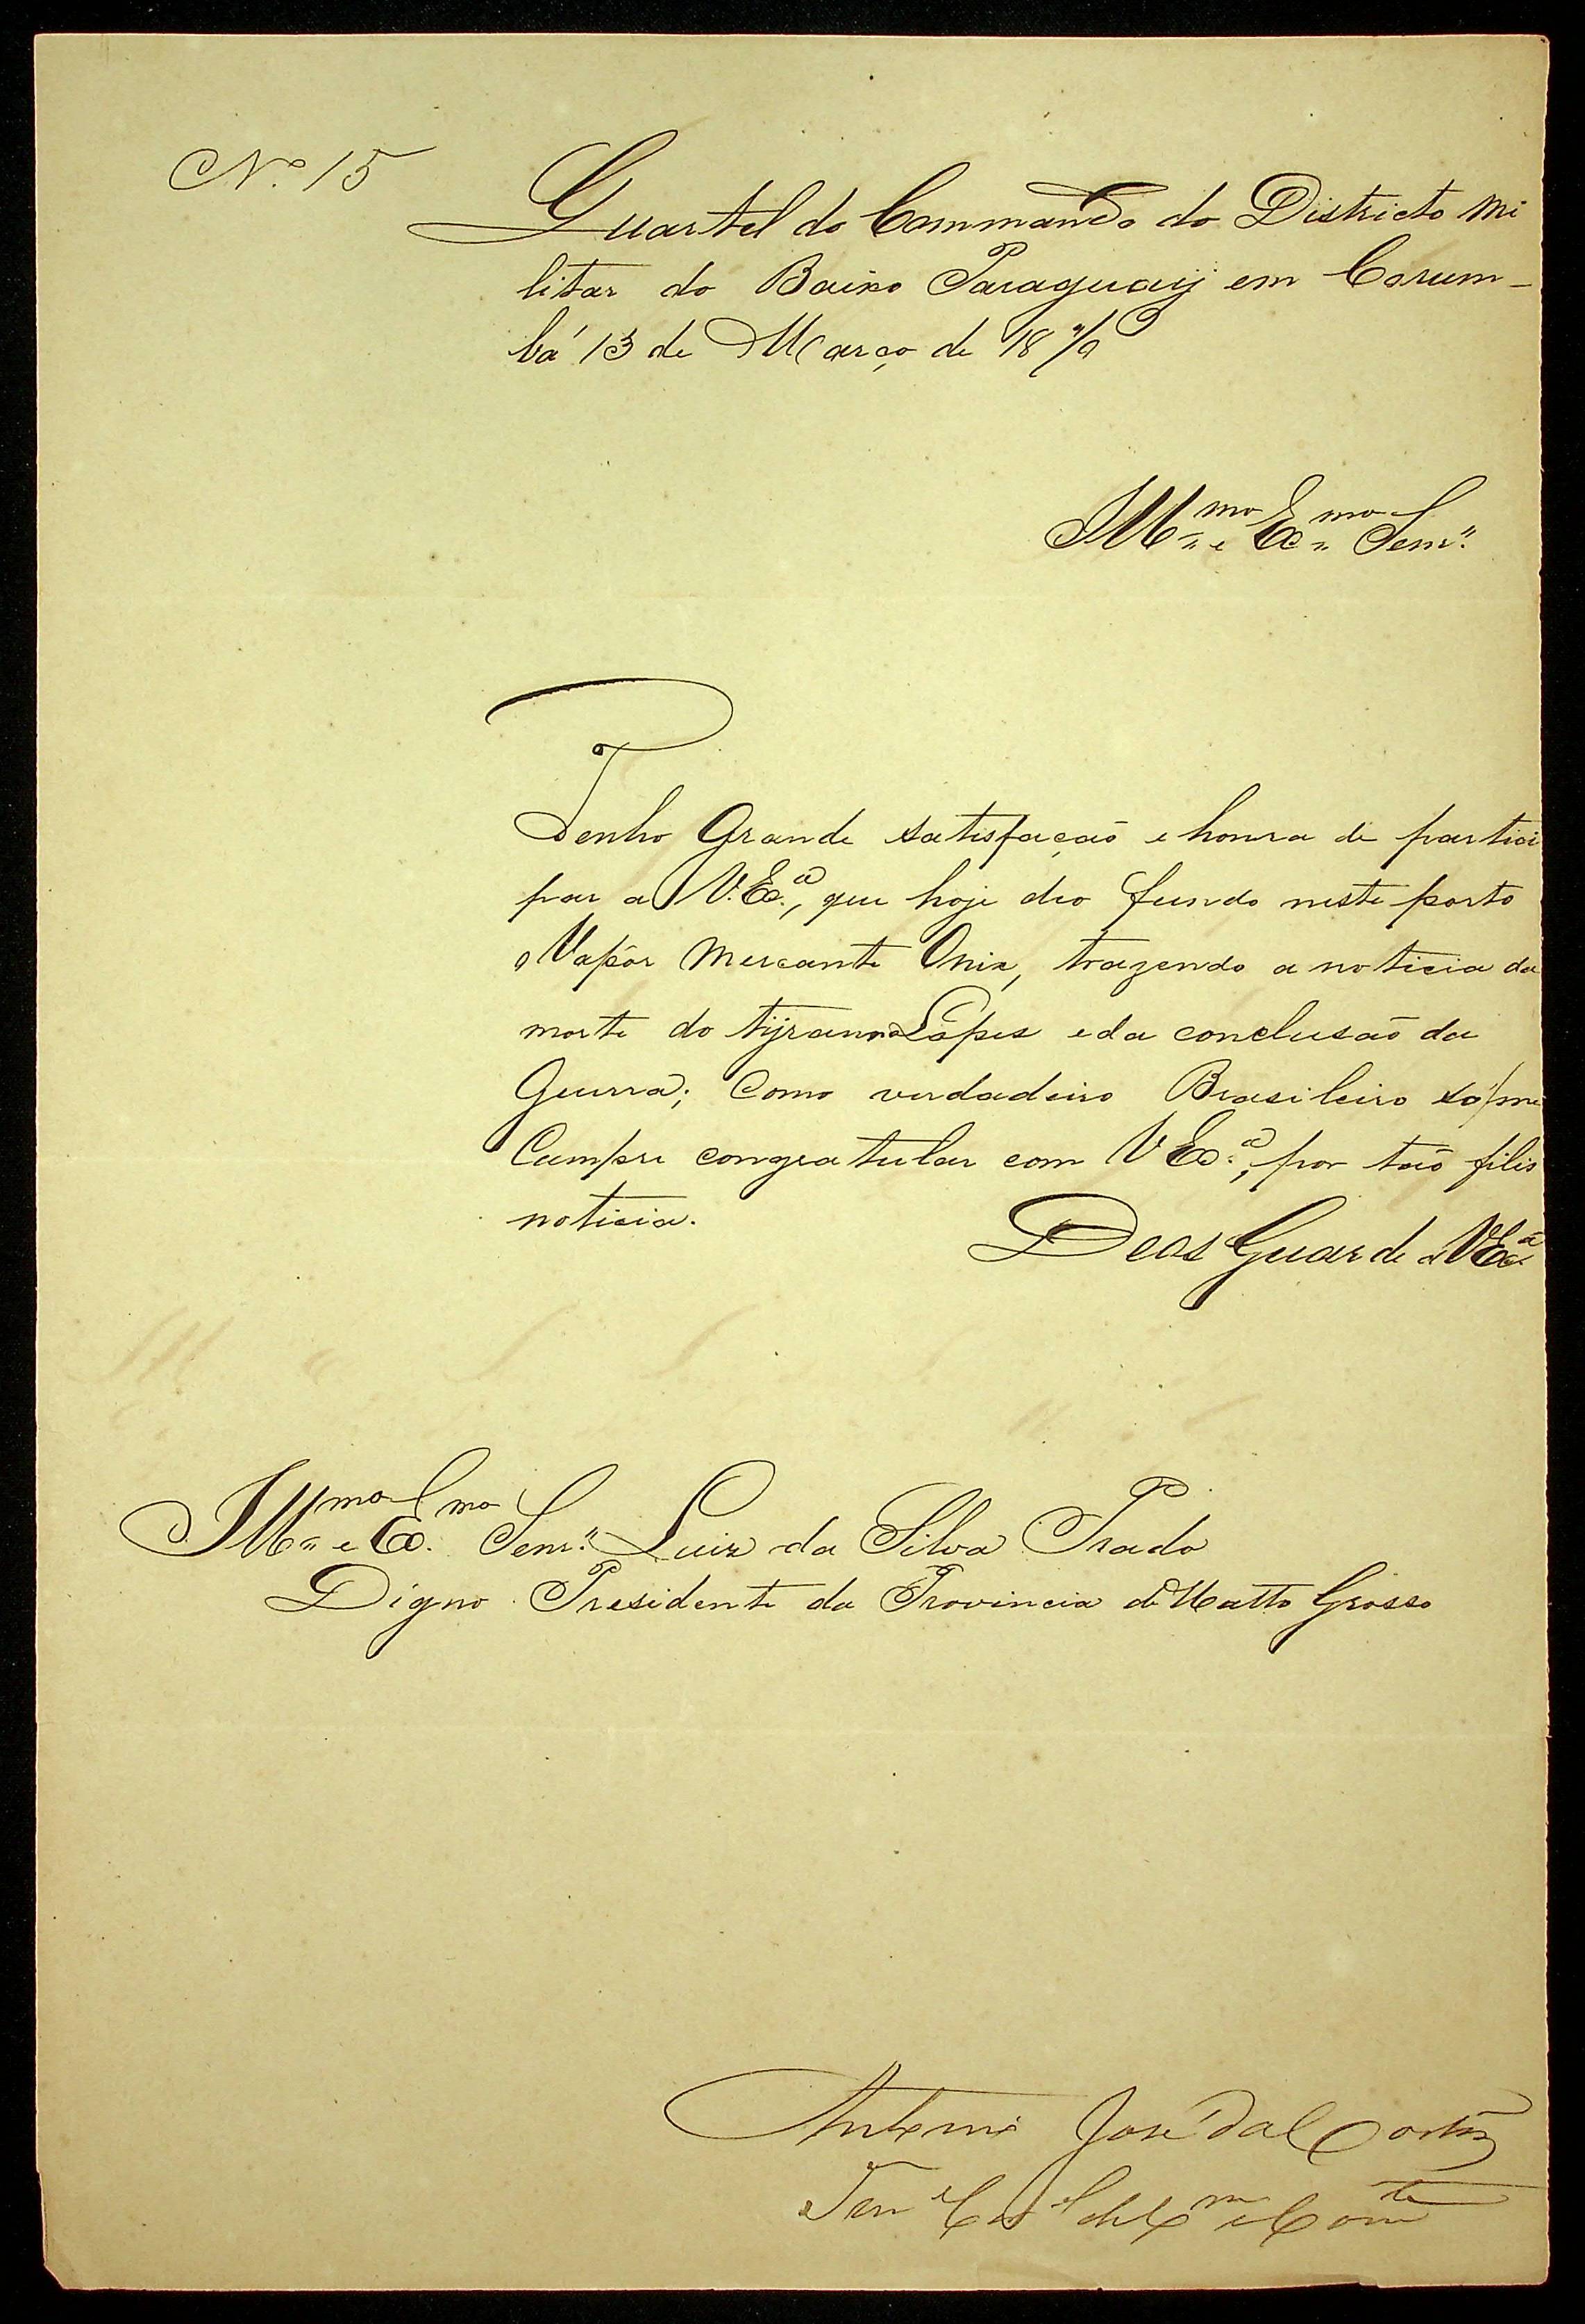 Nº 15
Quartel do Commando do Districto Mi
litar do Baixo Paraguaÿ em Corum-
bá 13 de Março de 1870
Illmo e Exmo Senr.
Tenho Grande satisfação e honra de partici
par a V. Exª., que hoje deo fundo neste porto
o Vapôr Mercante Onix, trazendo a noticia da
morte do tÿranno Lópes e da conclusão da
Guerra; Como verdadeiro Brasileiro só me
Cumpre congratular com V Exª., por tão felis
noticia.
Deos Guarde a V Exª
Illmo e Exmo Senr. Luiz da Silva Prado
Digno Presidente da Provincia de Matto Grosso
Antonio José da Costa
Ten Cel